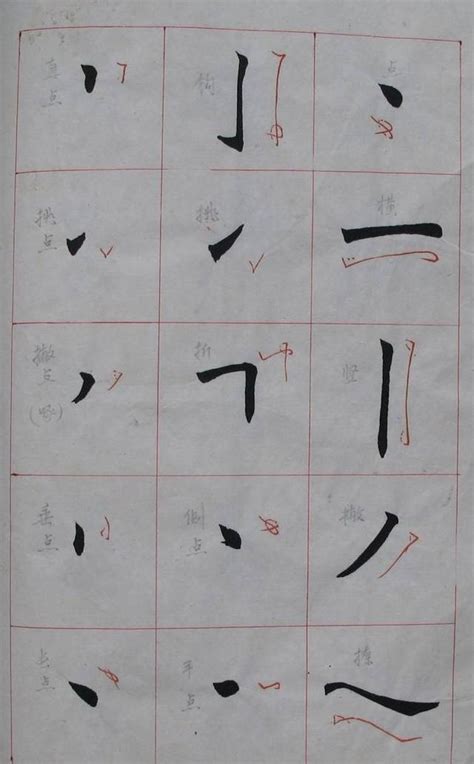 点
横
竖
撇
捺
钩
挑
折
侧点
平点
直点
挑点
撇点(啄)
垂点
长点